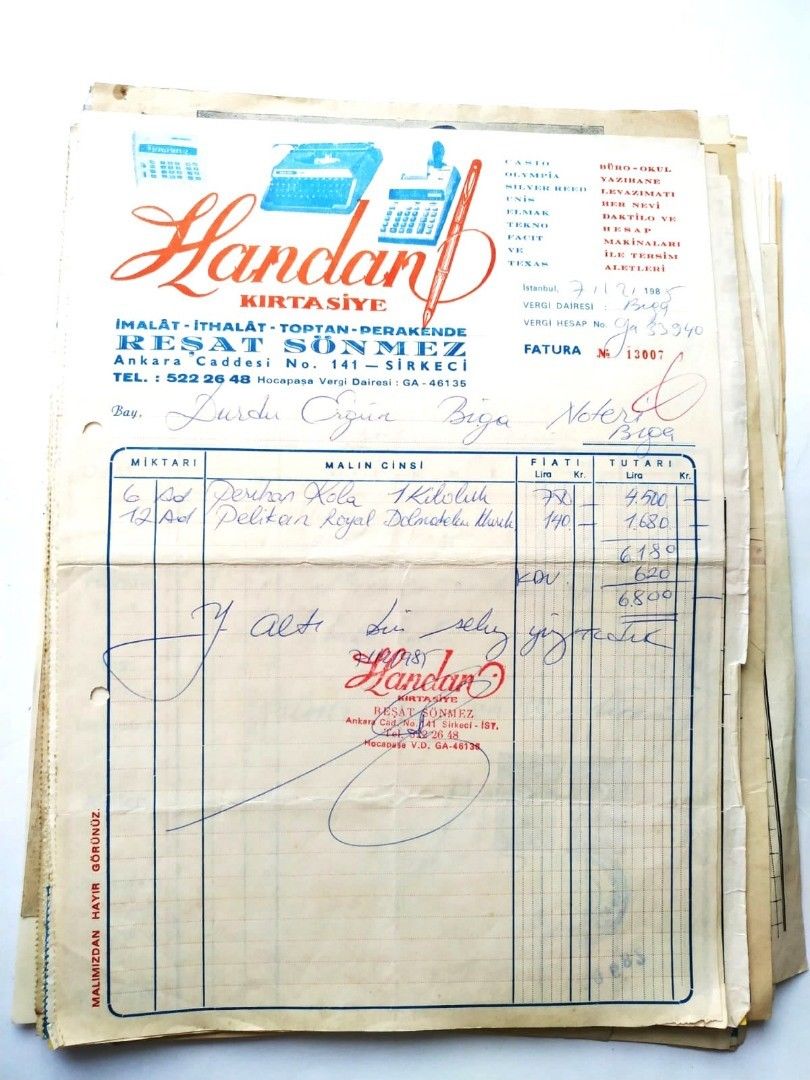 Handan
KIRTASİYE
İMALÂT - İTHALÂT - TOPTAN - PERAKENDE
REŞAT SÖNMEZ
Ankara Caddesi No. 141 — SİRKECİ
TEL. : 522 26 48 Hocapaşa Vergi Dairesi : GA - 46135
CASIO
OLYMPİA
SILVER REED
UNİS
ELMAK
TEKNO
FACIT
VE
TEXAS
BÜRO - OKUL
YAZIHANE
LEVAZIMATI
HER NEVİ
DAKTİLO VE
HESAP
MAKİNALARI
İLE TERSİM
ALETLERİ
İstanbul, 7/12/1985
VERGİ DAİRESİ : Biga
VERGİ HESAP No. Ga 33940
FATURA № 13007
Bay, Durdu Ergün Biga Noteri
Biga
MİKTARI MALIN CİNSİ FİATI TUTARI
Lira Kr. Lira Kr.
6 Ad Perihan Kola 1 Kiloluk 750 — 4.500 —
12 Ad Pelikan Royal 140 — 1.680 —
6180
KDV. 620
6.800 —
Y altı bin sekiz yüz
7/12/1985
Handan
KIRTASİYE
REŞAT SÖNMEZ
Ankara Cad. No. 141 Sirkeci - İST.
Tel. 522 26 48
Hocapaşa V.D. GA-46135
MALIMIZDAN HAYIR GÖRÜNÜZ.